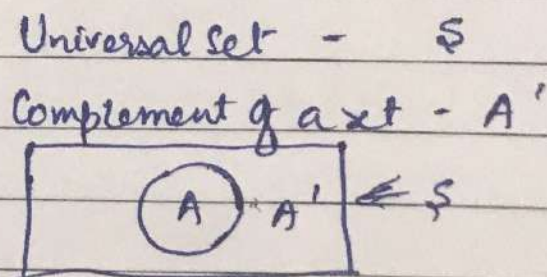 Universal Set - S
Complement of a set - A'
A A' ← S